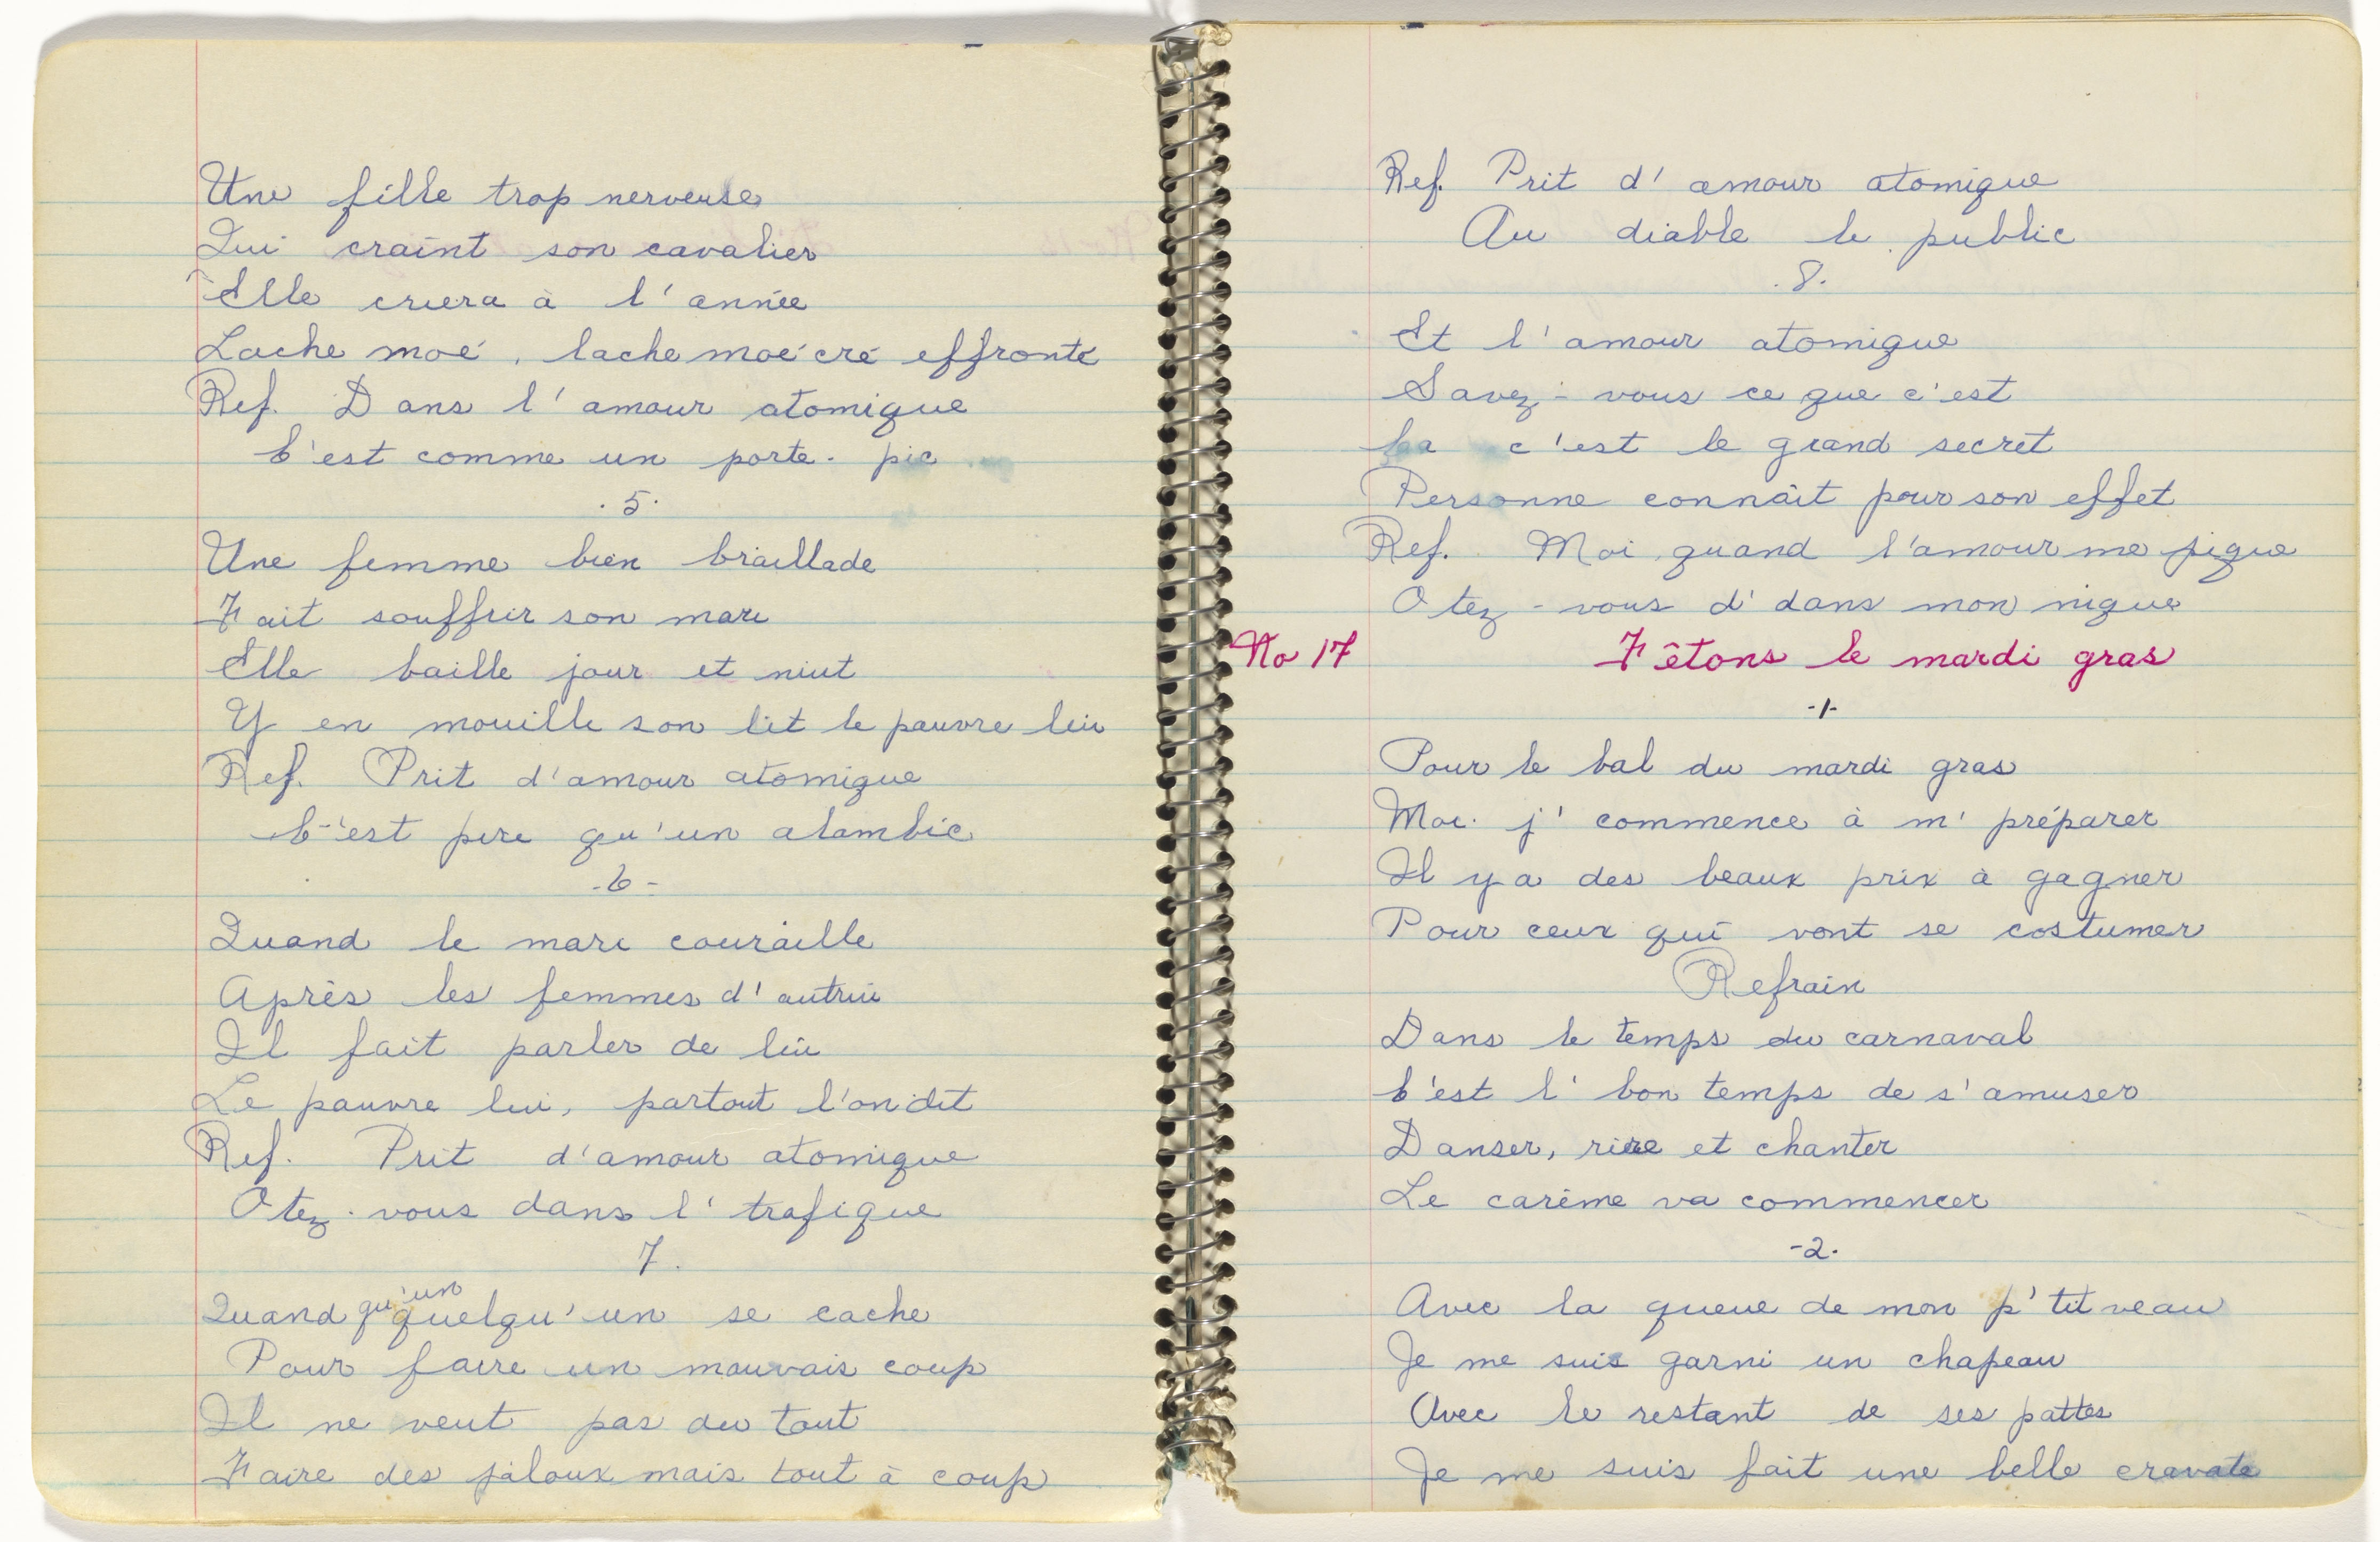 Une fille trop nerveuse
Qui craint son cavalier
Elle criera à l'année
Lache moé, lache moé cré effronté
Ref. Dans l'amour atomique
C'est comme un porte-pic
.5.
Une femme bien braillade
Fait souffrir son mari
Elle baille jour et niut
Y en mouille son lit le pauvre lui
Ref. Prit d'amour atomique
C'est pire qu'un alambic
-6-
Quand le mari couraille
Après les femmes d'autrui
Il fait parler de lui
Le pauvre lui, partout l'on dit
Ref. Prit d'amour atomique
Otez-vous dans l'trafique
7.
qu'un
Quand quelqu'un se cache
Pour faire un mauvais coup
Il ne veut pas du tout
Faire des jaloux mais tout à coup
Ref. Prit d'amour atomique
Au diable le public
.8.
Et l'amour atomique
Savez-vous ce que c'est
Ca c'est le grand secret
Personne connaît pour son effet
Ref. Moi quand l'amour me pique
Otez-vous d'dans mon nique
No 17 Fêtons le mardi gras
-1-
Pour le bal du mardi gras
Moi j'commence à m'préparer
Il y a des beaux prix à gagner
Pour ceux qui vont se costumer
Refrain
Dans le temps du carnaval
C'est l'bon temps de s'amuser
Danser, rire et chanter
Le carême va commencer
-2-
Avec la queue de mon p'tit veau
Je me suis garni un chapeau
Avec le restant de ses pattes
Je me suis fait une belle cravate